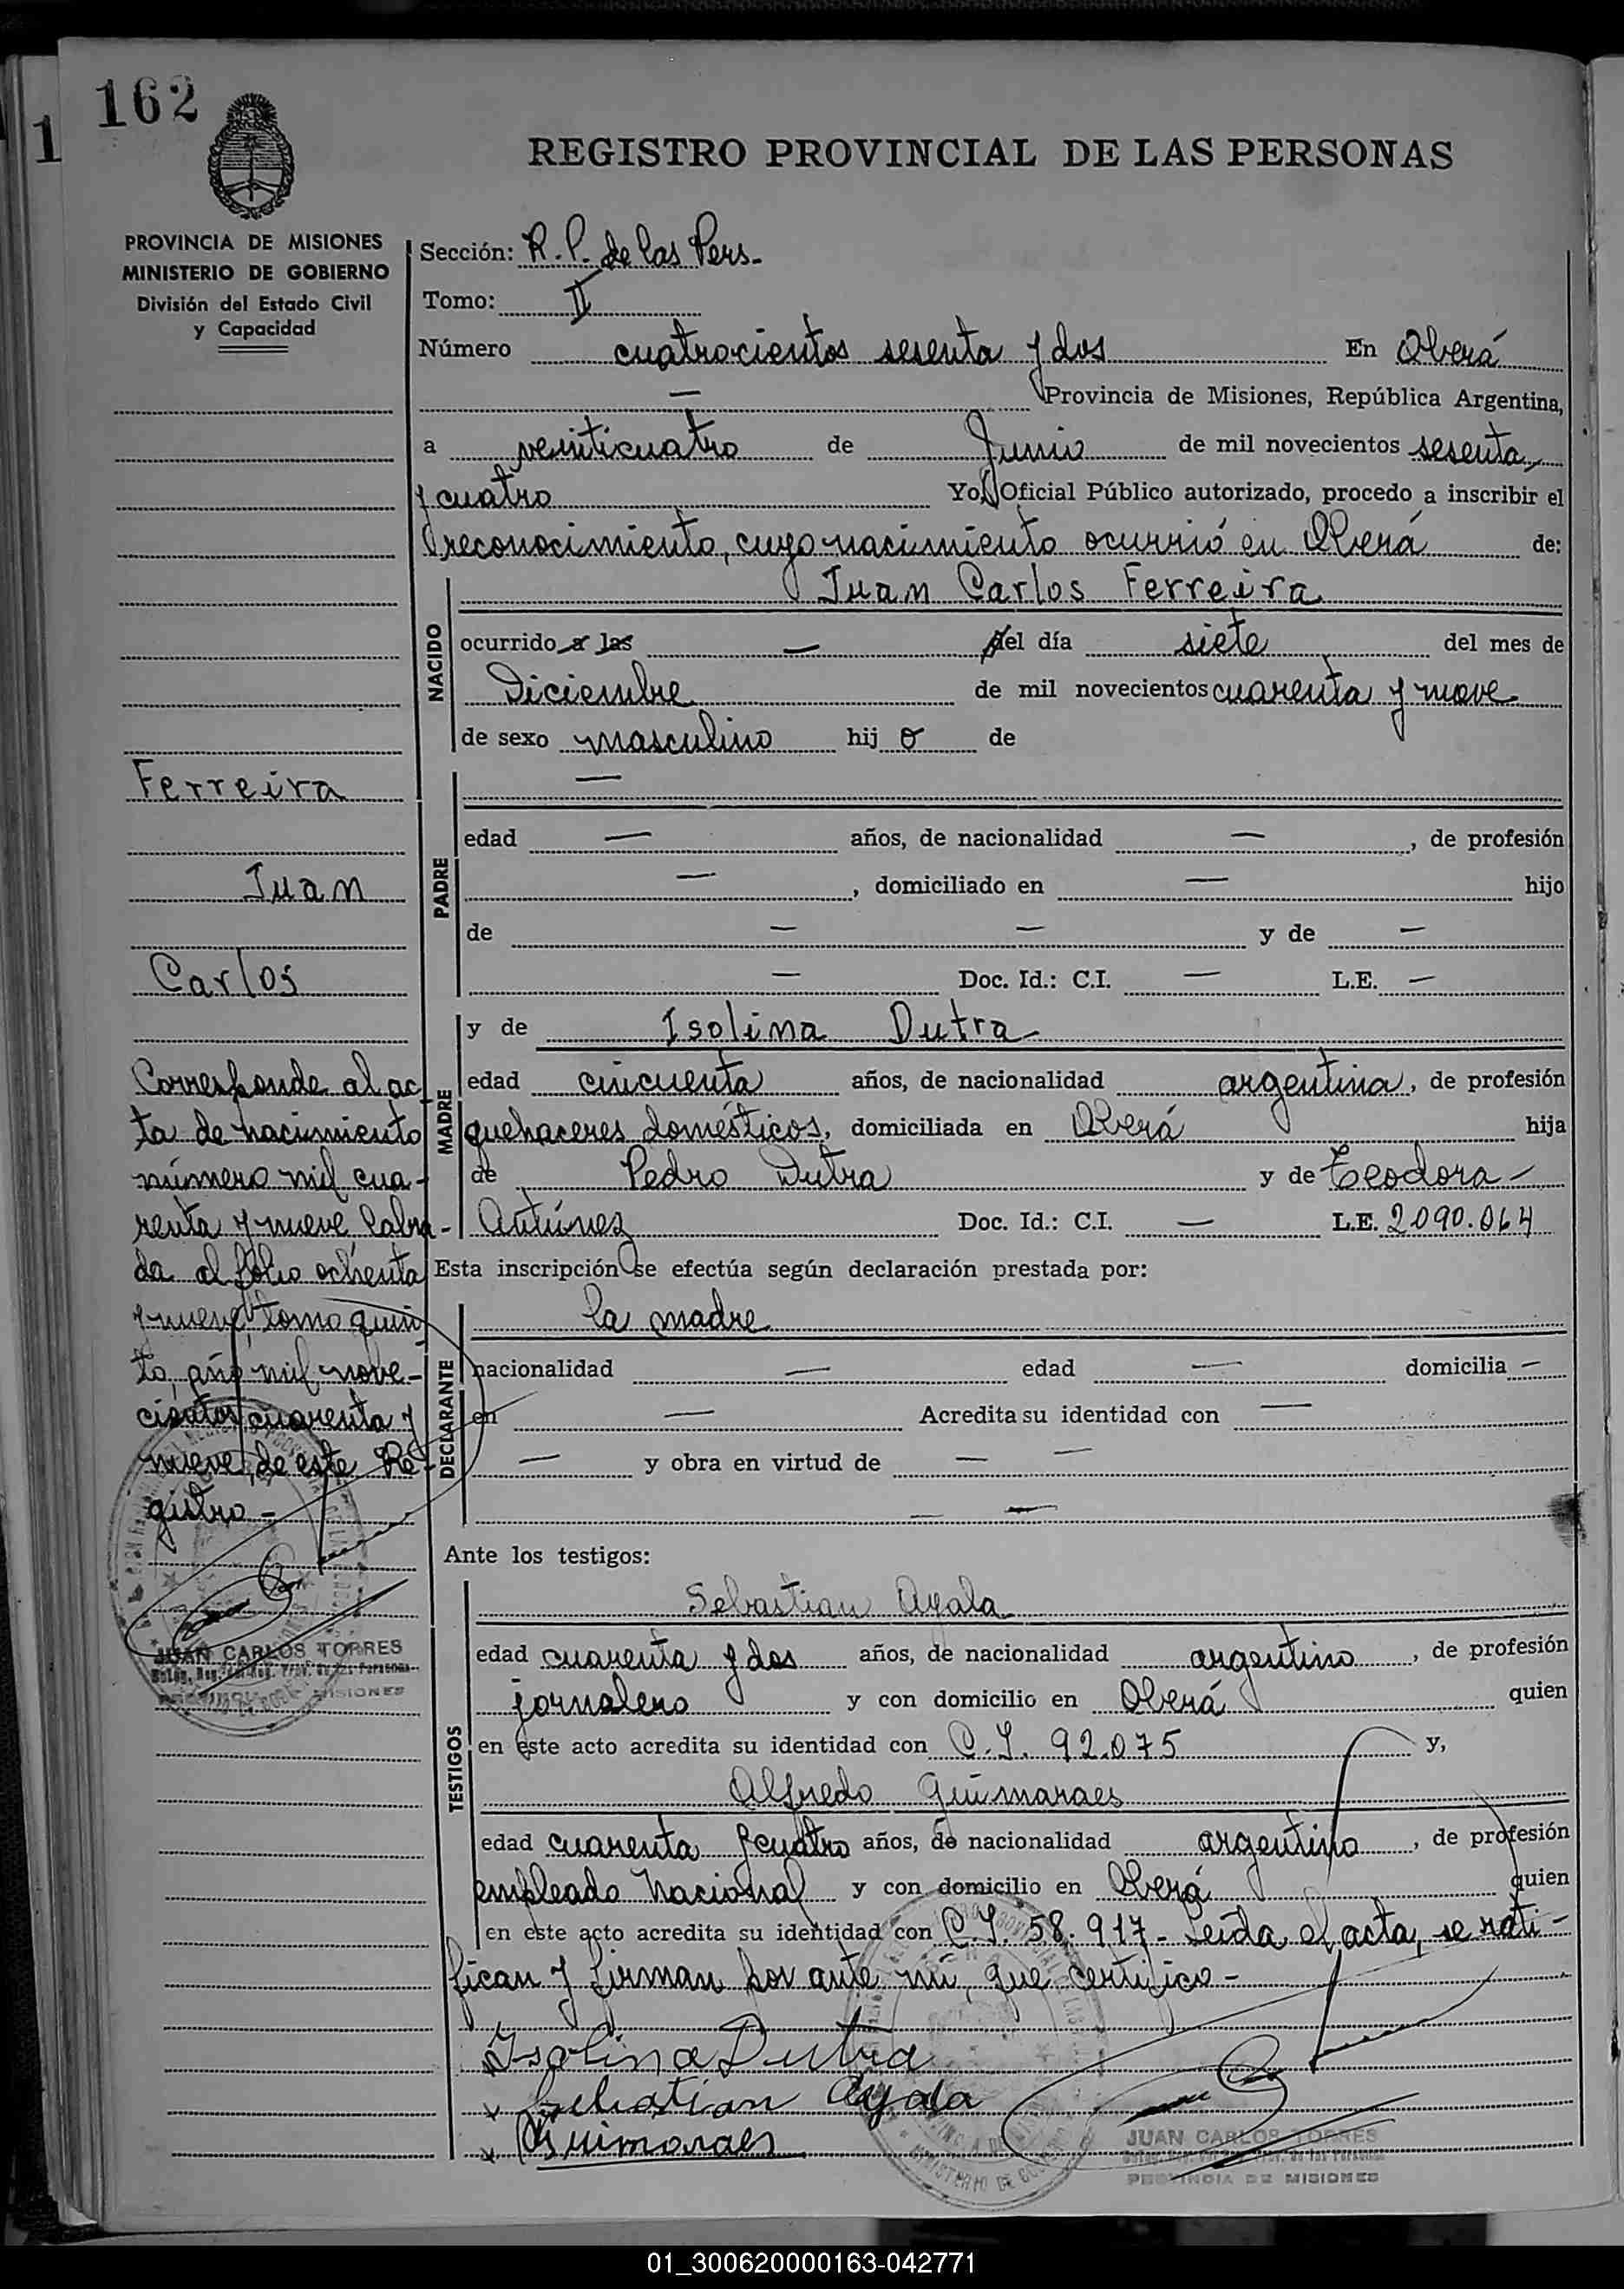 162
1
REGISTRO PROVINCIAL DE LAS PERSONAS
PROVINCIA DE MISIONES
MINISTERIO DE GOBIERNO
División del Estado Civil
y Capacidad
Sección: R. P. de las Pers.
Tomo: II
Número cuatrocientos sesenta y dos En Oberá
— Provincia de Misiones, República Argentina,
a veinticuatro de Junio de mil novecientos sesenta
y cuatro Yo, Oficial Público autorizado, procedo a inscribir el
reconocimiento, cuyo nacimiento ocurrió en Oberá de:
NACIDO
Juan Carlos Ferreira
ocurrido a las — del día siete del mes de
Diciembre de mil novecientos cuarenta y nueve
de sexo masculino hij o de
PADRE
—
edad — años, de nacionalidad — , de profesión
— , domiciliado en — hijo
de — — y de —
— Doc. Id.: C.I. — L.E. —
MADRE
y de Isolina Dutra
edad cincuenta años, de nacionalidad argentina, de profesión
quehaceres domésticos, domiciliada en Oberá hija
de Pedro Dutra y de Teodora
Antúnez Doc. Id.: C.I. — L.E. 2090.064
Esta inscripción se efectúa según declaración prestada por:
DECLARANTE
la madre
nacionalidad — edad — domicilia —
en — Acredita su identidad con —
— y obra en virtud de — —
— —
Ante los testigos:
TESTIGOS
Sebastian Ayala
edad cuarenta y dos años, de nacionalidad argentino, de profesión
jornalero y con domicilio en Oberá quien
en este acto acredita su identidad con C.I. 92.075 y,
Alfredo Guimaraes
edad cuarenta y cuatro años, de nacionalidad argentino, de profesión
empleado Nacional y con domicilio en Oberá quien
en este acto acredita su identidad con C.I. 58.917- Leída el acta, se rati-
fican y firman por ante mí, que certifico-
Isolina Dutra
Sebatian Ayala
Guimaraes
JUAN CARLOS TORRES
PROVINCIA DE MISIONES
Ferreira
Juan
Carlos
Corresponde al ac-
ta de nacimiento
número mil cua-
renta y nueve labra-
da al folio ochenta
y nueve, tomo quin-
to, año mil nove-
cientos cuarenta y
nueve, de este Re-
gistro-
JUAN CARLOS TORRES
PROVINCIA DE MISIONES
01_300620000163-042771